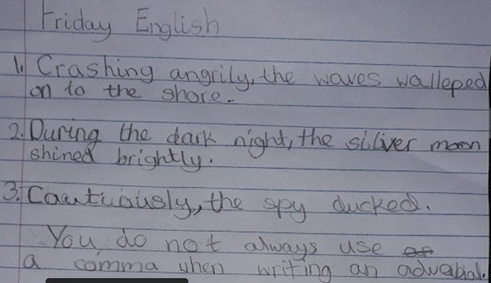 Friday English
1. Crashing angrily, the waves walleped
on to the shore.
2. During the dark night, the siliver moon
shined brightly.
3. Cautuously, the spy ducked.
You do not always use
a comma when writing an advabial.